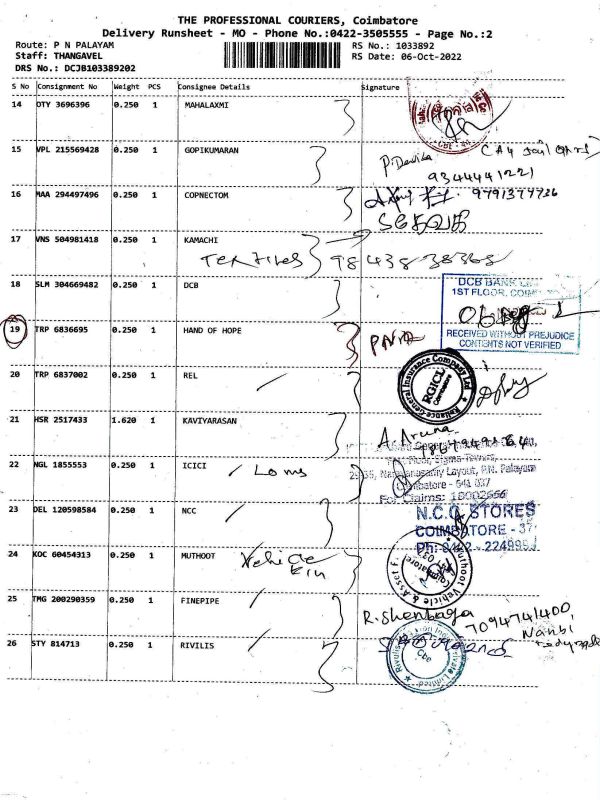 THE PROFESSIONAL COURIERS, Coimbatore
Delivery Runsheet - MO - Phone No.:0422-3505555 - Page No.:2
Route: P N PALAYAM RS No.: 1033892
Staff: THANGAVEL RS Date: 06-Oct-2022
DRS No.: DCJB103389202
S No Consignment No Weight PCS Consignee Details Signature
14 OTY 3696396 0.250 1 MAHALAXMI
15 VPL 215569428 0.250 1 GOPIKUMARAN
9344441221
16 MAA 294497496 0.250 1 COPNECTOM
9791377736
17 VNS 504981418 0.250 1 KAMACHI
Textiles 9843838368
18 SLM 304669482 0.250 1 DCB
DCB BANK
1ST FLOOR,
RECEIVED WITHOUT PREJUDICE
CONTENTS NOT VERIFIED
19 TRP 6836695 0.250 1 HAND OF HOPE
20 TRP 6837002 0.250 1 REL
Reliance General Insurance Company Ltd
RGICL
21 HSR 2517433 1.620 1 KAVIYARASAN
A. Aruna
22 NGL 1855553 0.250 1 ICICI
Layout, P.N. Palayam
Coimbatore - 641 037
For Claims:
23 DEL 120598584 0.250 1 NCC
N.C.C. STORES
COIMBATORE - 37
Ph: 0422 -
24 KOC 60454313 0.250 1 MUTHOOT Vehicle
Muthoot Vehicle & Asset F
25 TMG 200290359 0.250 1 FINEPIPE
R. Shenbaga 7094741400
26 STY 814713 0.250 1 RIVILIS
Private Limited
Cbe